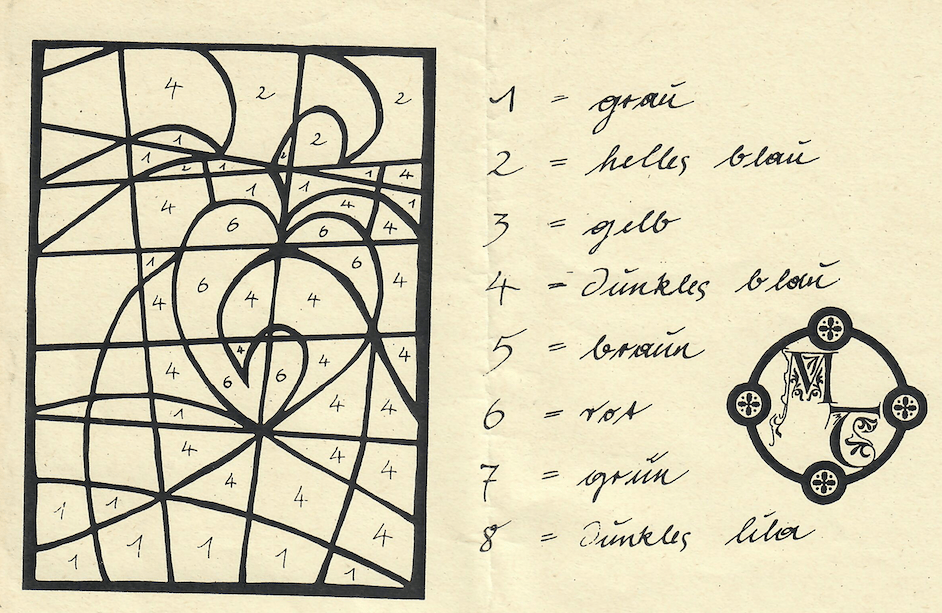 4 2 2
1 2
1 2
2 1 1 4
1 1
4 4 1
6 6 4
1 6
4 6 4 4 4
4 4 4
4 6 6
1 4 4
4 4 4
4 4
1 1 4
1 1 1
1 1
1 = grau
2 = helles blau
3 = gelb
4 = Dunkles blau
5 = braun
6 = rot
7 = grün
8 = Dunkles lila
M
C